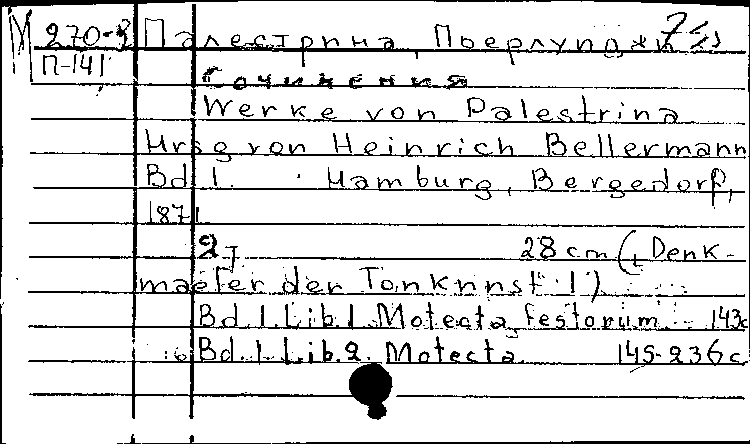 М 270-3 Палестрина, Пьерлуиджи
П-141
Сочинения
Werke von Palestrina
Hrsg von Heinrich Bellermann
Bd 1. Hamburg, Bergedorf,
1871
28 cm (Denk-
maeler der Tonknnst 1)
Bd. 1. Lib. 1 Motecta festorum 143c
Bd. 1. Lib. 2. Motecta 145-236c